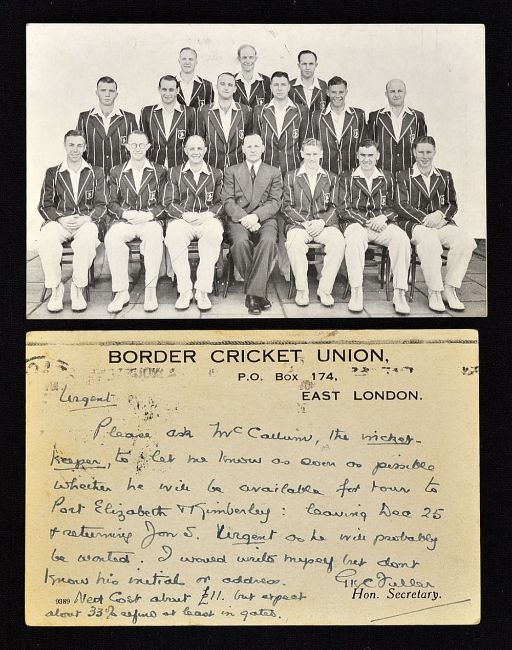 BORDER CRICKET UNION,
P.O. Box 174,
EAST LONDON.
Urgent
Please ask McCallum, the wicket-
keeper, to let me know as soon as possible
whether he will be available for tour to
Port Elizabeth & Kimberley: leaving Dec 25
& returning Jan 5. Urgent as he will probably
be wanted. I would write myself but dont
know his initial or address.
Fuller
9389 Hon. Secretary.
Nett Cost about £11. but expect
about 33% refund at least in gates.